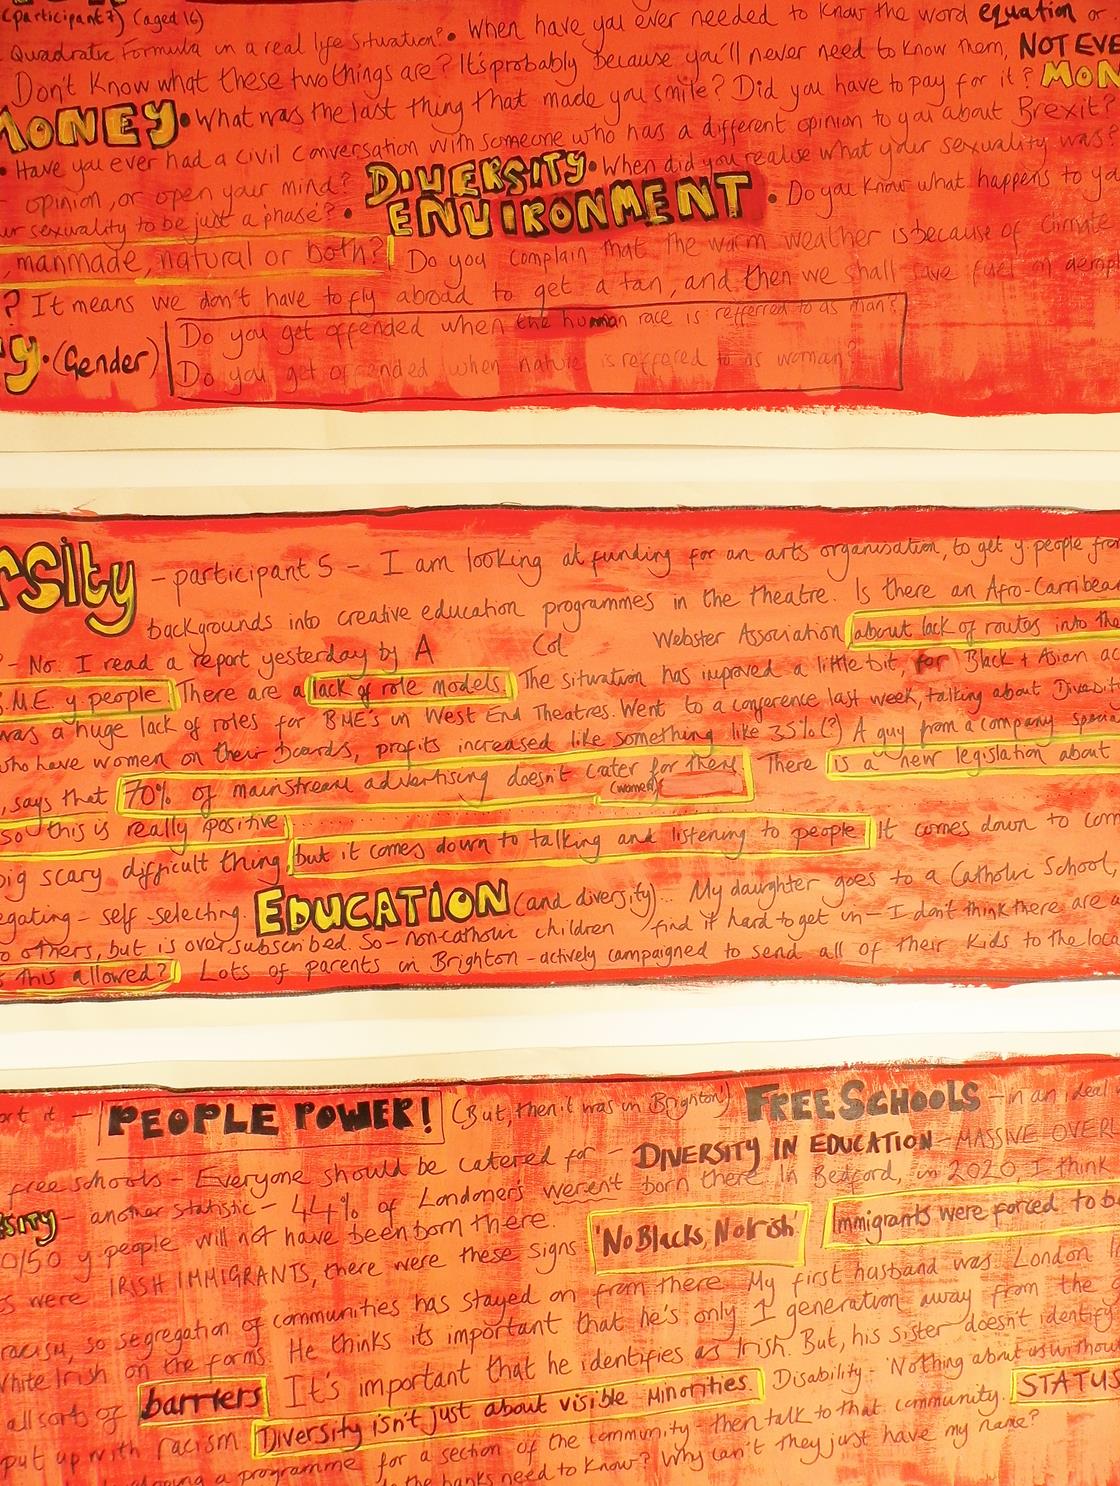 (participant 7) (aged 16)
Quadratic Formula in a real life situation? • When have you ever needed to know the word equation or
Don't know what these two things are? It's probably because you'll never need to know them, NOT EVE
MONEY • What was the last thing that made you smile? Did you have to pay for it? MON
• Have you ever had a civil conversation with someone who has a different opinion to you about Brexit?
opinion, or open your mind? DIVERSITY • When did you realise what your sexuality was?
ur sexuality to be just a phase? • ENVIRONMENT • Do you know what happens to yo
, manmade, natural or both? Do you complain that the warm weather is because of climate
? It means we don't have to fly abroad to get a tan, and then we shall save fuel on aerop
y • (Gender) Do you get offended when the human race is refferred to as man?
Do you get offended when nature is reffered to as woman?
rsity - participant 5 - I am looking at funding for an arts organisation, to get y. people from
backgrounds into creative education programmes in the theatre. Is there an Afro-Carribean
? - No. I read a report yesterday by A Col Webster Association about lack of routes into the
.M.E. y people There are a lack of role models. The situation has improved a little bit, for Black + Asian ac
was a huge lack of roles for BME's in West End Theatres. Went to a conference last week, talking about Diversit
who have women on their boards, profits increased like something like 35% (?) A guy from a company special
, says that 70% of mainstream advertising doesn't cater for them (women) There is a new legislation about
so this is really positive
big scary difficult thing, but it comes down to talking and listening to people. It comes down to com
egating - self-selecting. EDUCATION (and diversity)... My daughter goes to a Catholic School,
o others, but is oversubscribed. So - non-catholic children find it hard to get in - I don't think there are a
s this allowed? Lots of parents in Brighton - actively campaigned to send all of their kids to the loca
ort it - PEOPLE POWER! (But, then it was in Brighton!) FREE SCHOOLS - in an ideal
free schools - Everyone should be catered for - DIVERSITY IN EDUCATION - MASSIVE OVERL
SITY - another statistic - 44% of Londoners weren't born there. In Bedford, in 2020, I think
0/50 y people will not have been born there. 'No Blacks, No Irish' Immigrants were forced to b
s were IRISH IMMIGRANTS, there were these signs
racism, so segregation of communities has stayed on from there. My first husband was London I
White Irish on the forms. He thinks its important that he's only 1 generation away from the
all sorts of barriers It's important that he identifies as Irish. But, his sister doesn't identify
put up with racism. Diversity isn't just about visible minorities. Disability - 'Nothing about us without
a programme for a section of the community - then talk to that community. STATUS
the banks need to know? Why can't they just have my name?